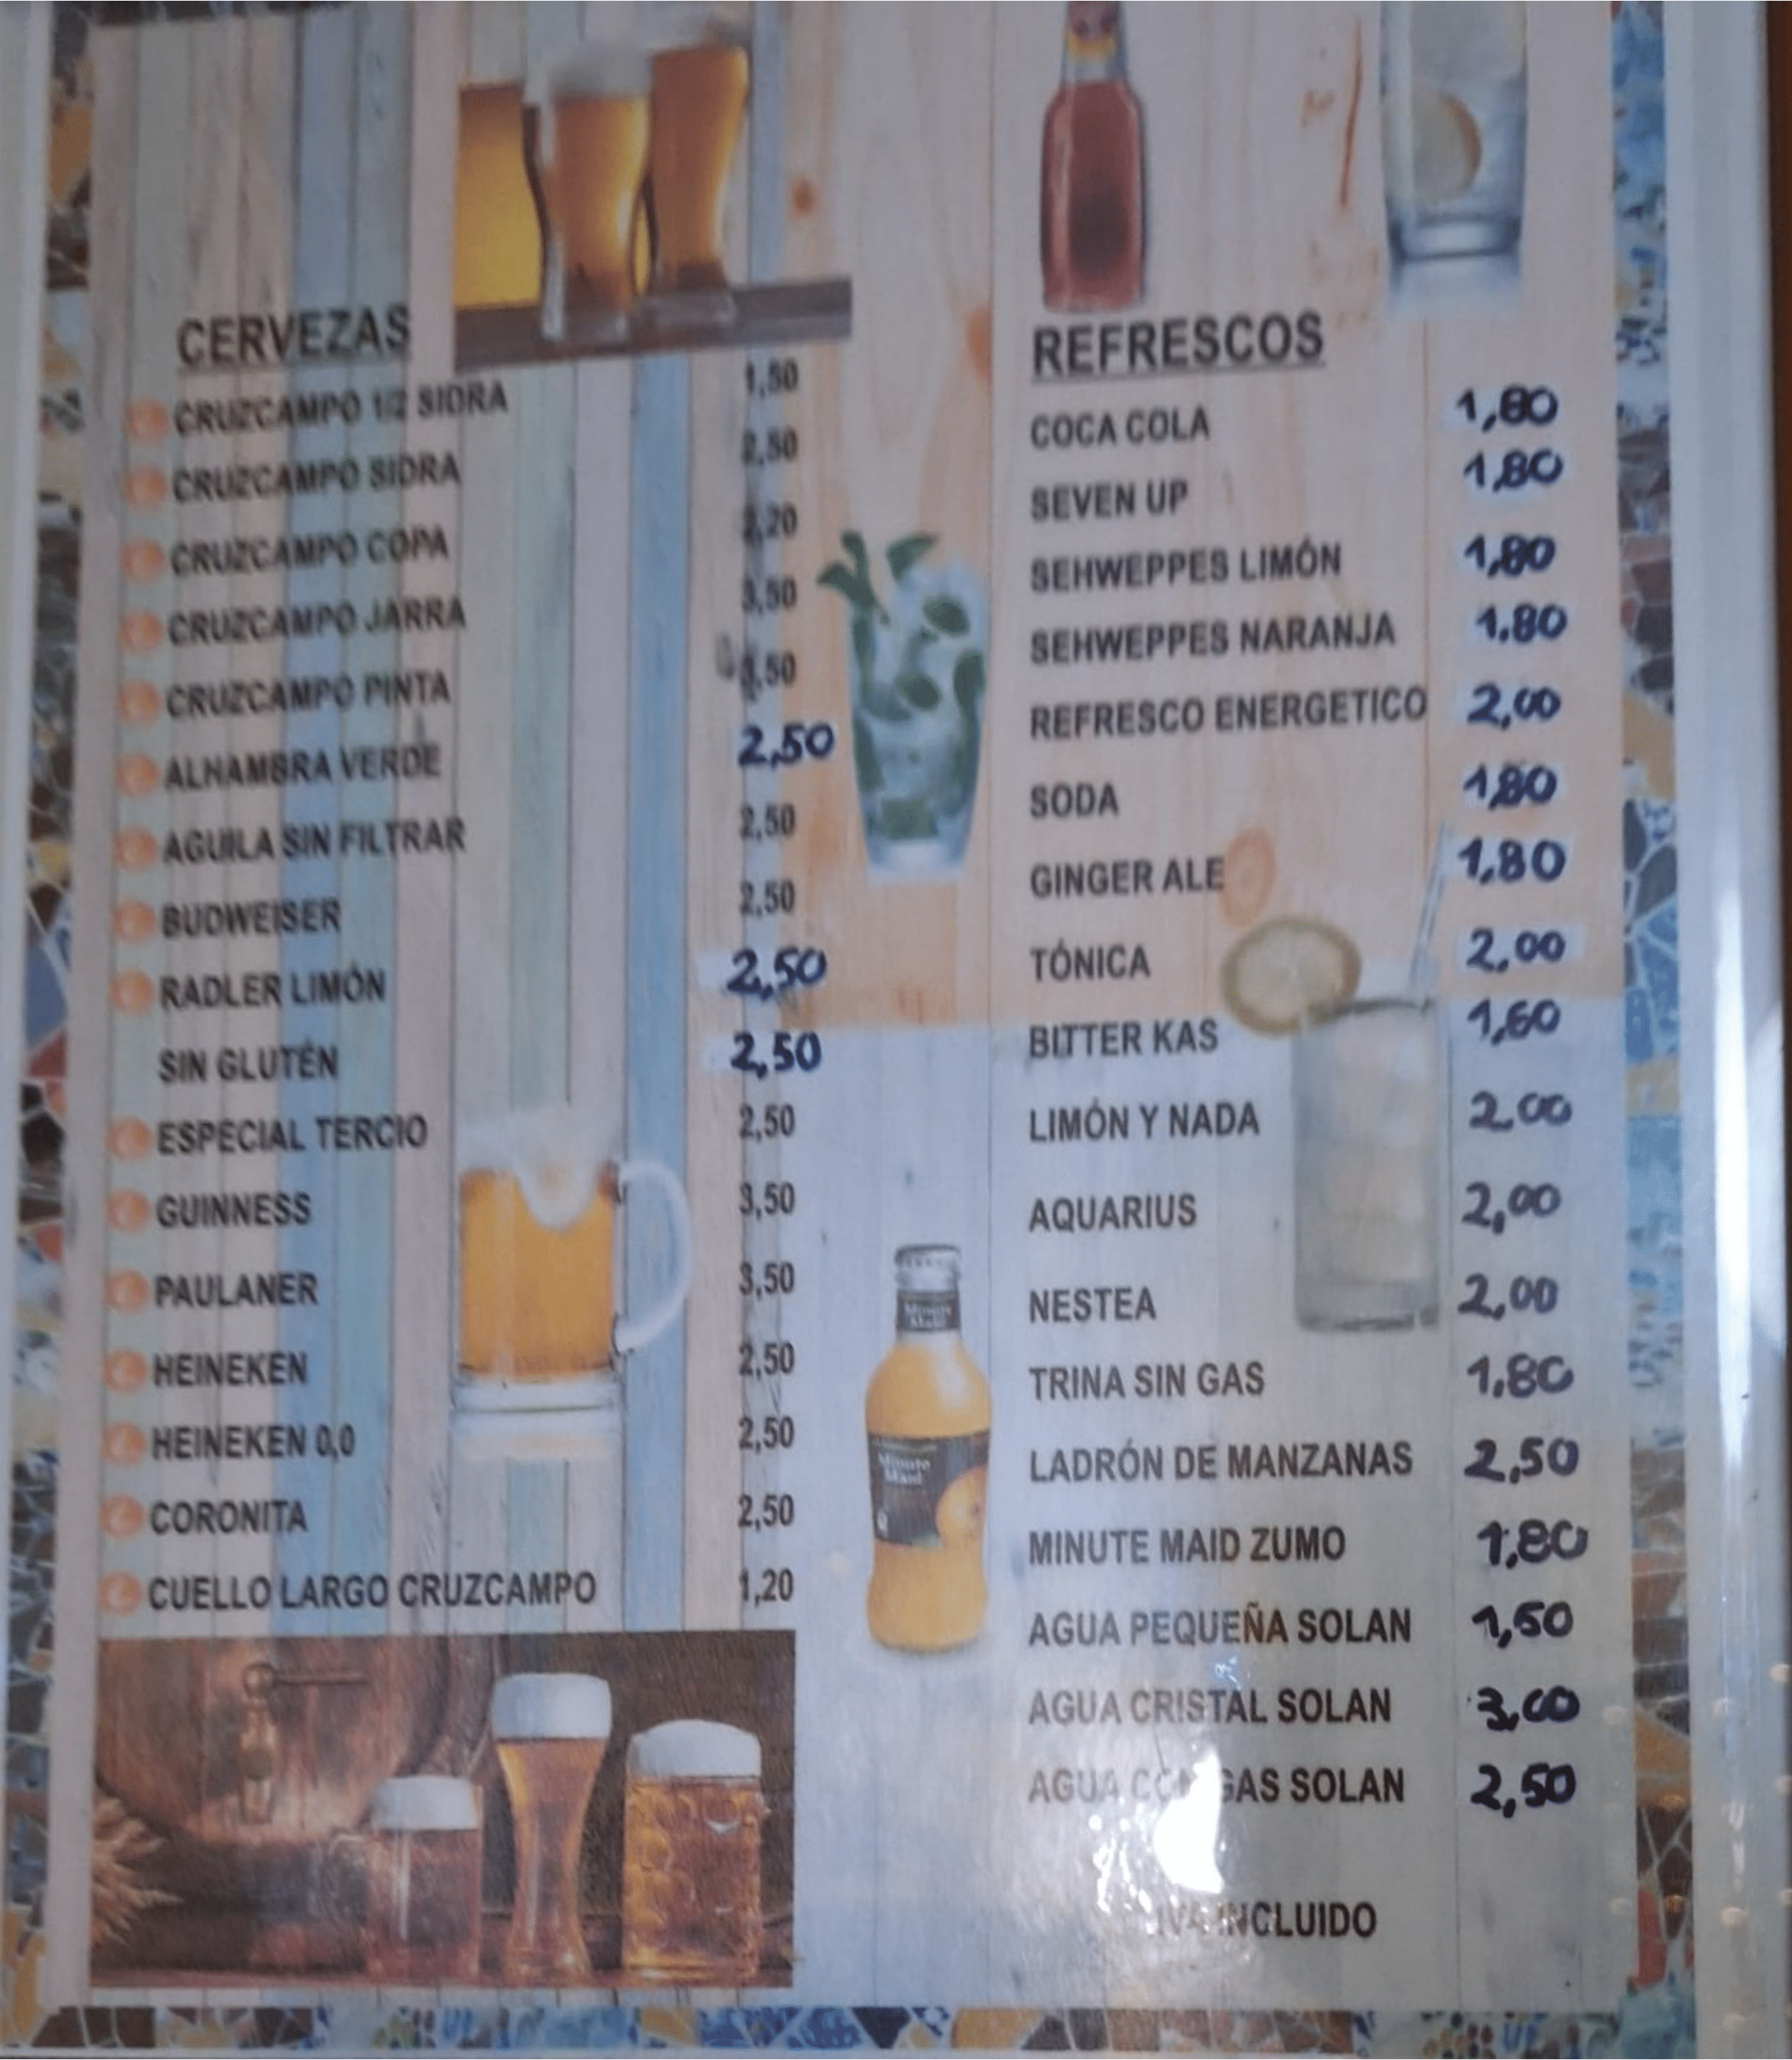 CERVEZAS
CRUZCAMPO 1/2 SIDRA 1,50
CRUZCAMPO SIDRA 2,50
CRUZCAMPO COPA 2,20
CRUZCAMPO JARRA 3,50
CRUZCAMPO PINTA
ALHAMBRA VERDE 2,50
AGUILA SIN FILTRAR 2,50
BUDWEISER 2,50
RADLER LIMÓN 2,50
SIN GLUTÉN 2,50
ESPECIAL TERCIO 2,50
GUINNESS 3,50
PAULANER 3,50
HEINEKEN 2,50
HEINEKEN 0,0 2,50
CORONITA 2,50
CUELLO LARGO CRUZCAMPO 1,20
Minute
Maid
Minute
Maid
REFRESCOS
COCA COLA 1,80
SEVEN UP 1,80
SEHWEPPES LIMÓN 1,80
SEHWEPPES NARANJA 1.80
REFRESCO ENERGETICO 2,00
SODA 1,80
GINGER ALE 1,80
TÓNICA 2,00
BITTER KAS 1,60
LIMÓN Y NADA 2,00
AQUARIUS 2,00
NESTEA 2,00
TRINA SIN GAS 1.80
LADRÓN DE MANZANAS 2,50
MINUTE MAID ZUMO 1,80
AGUA PEQUEÑA SOLAN 1,50
AGUA CRISTAL SOLAN 3,00
AGUA CON GAS SOLAN 2,50
IVA INCLUIDO